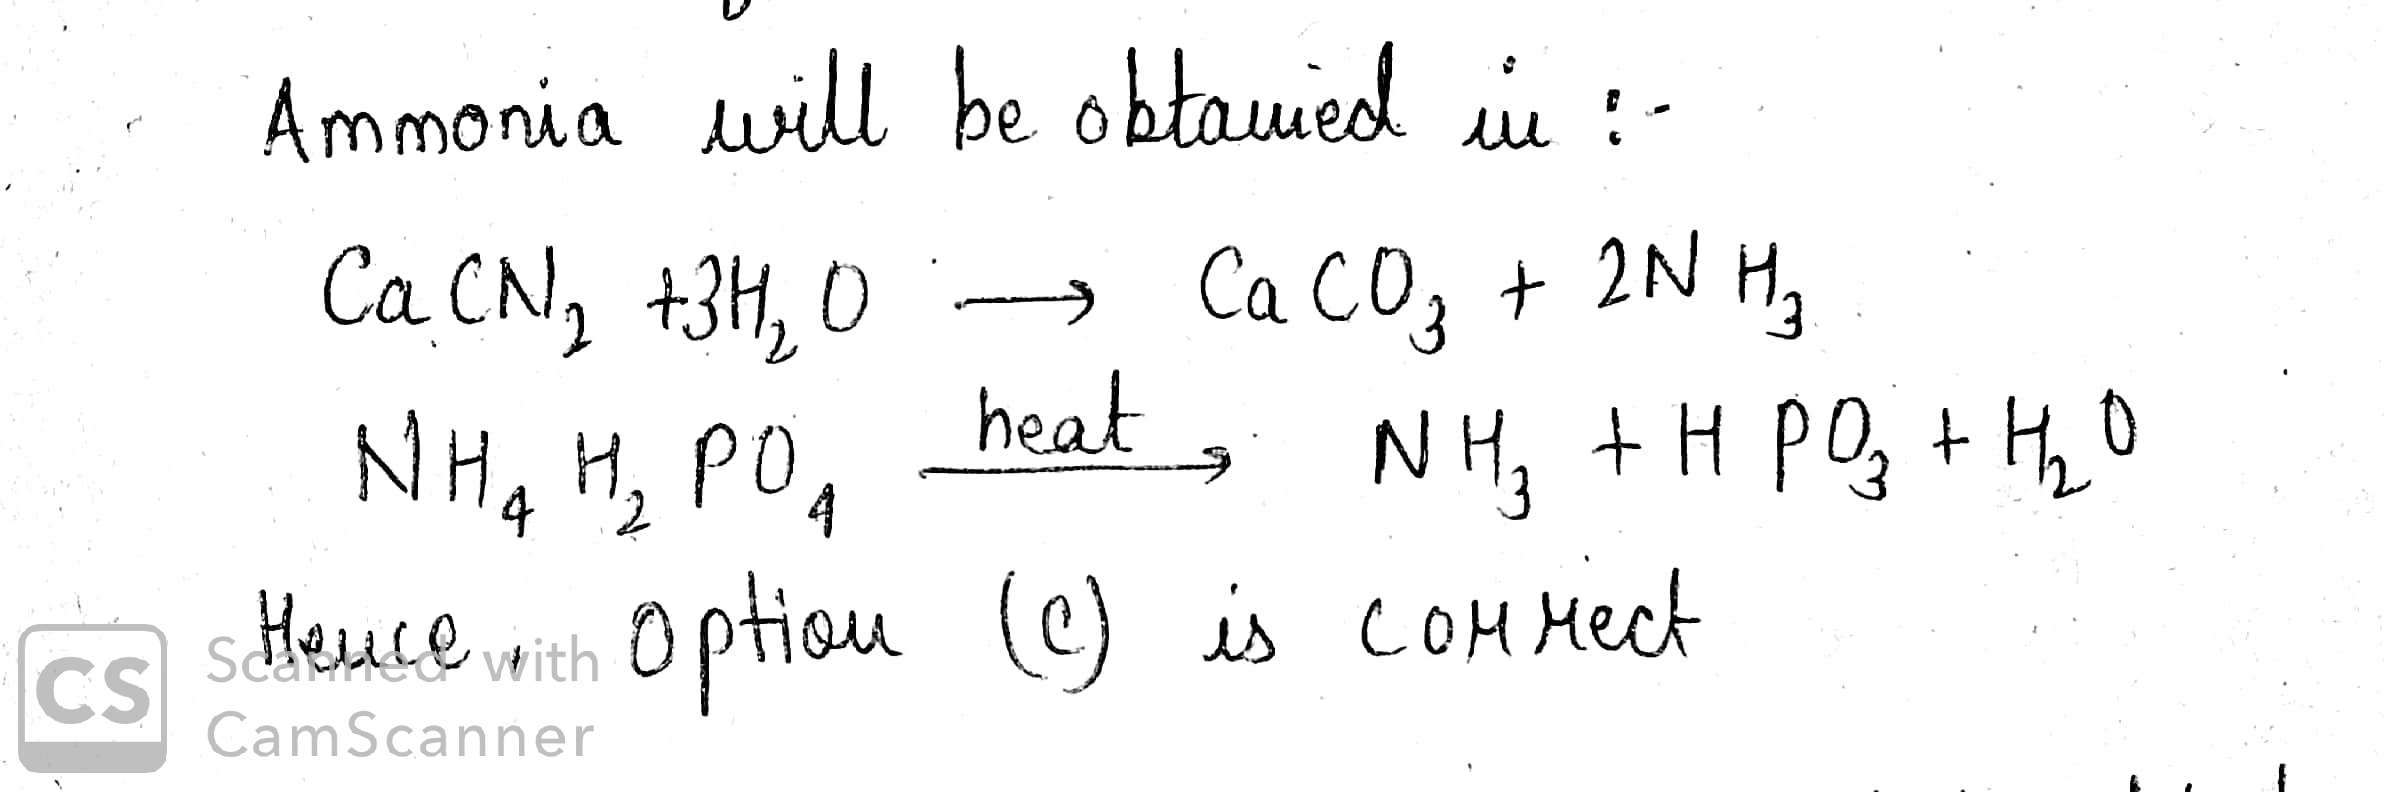 Ammonia will be obtained in :-
CaCN₂ +3H₂O → CaCO₃ + 2NH₃
NH₄H₂PO₄ heat→ NH₃ + HPO₃ + H₂O
Hence, option (c) is correct
CS Scanned with
CamScanner